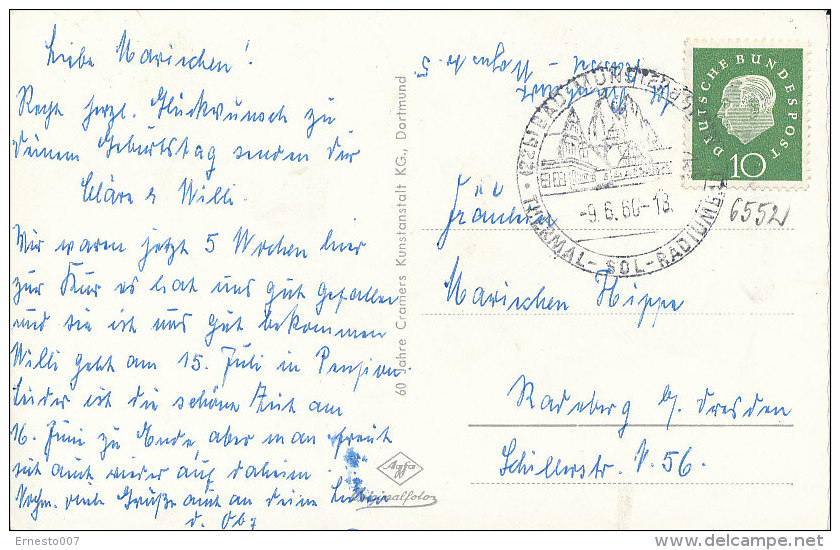 Liebe Marischen!
Recht herzl. Glückwunsch zu
Deinem Geburtstag senden dir
Cläre & Willi.
Wir waren jetzt 5 Wochen hier
zur Kur es hat uns gut gefallen
und sie ist uns gut bekommen
Willi geht am 15. Juli in Pension.
Leider ist die schöne Zeit am
16. Juni zu Ende, aber man freut
sich auch wieder auf daheim.
Nochm. viele Grüße auch an deine Lieben
d. Obg
60 Jahre Cramers Kunstanstalt KG., Dortmund
Agfa
Originalfoto
DEUTSCHE BUNDESPOST
10
(22b) BAD MÜNSTER
-9.6.60-18
THERMAL-SOL-RADIUMBAD
6552
Fräulein
Marischen Hippe
Radeberg b/ Dresden
Schillerstr. N. 56.
Ernesto007
delcampe.net